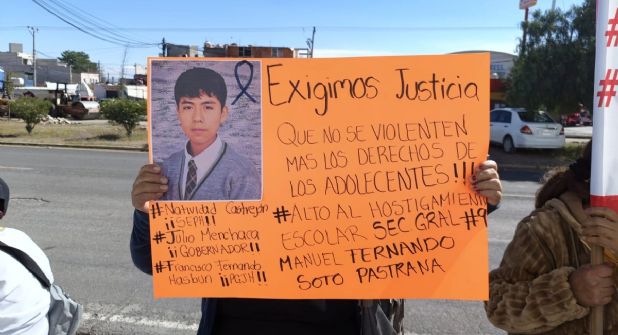 Exigimos Justicia
QUE NO SE VIOLENTEN
MAS LOS DERECHOS DE
LOS ADOLECENTES!!!
#ALTO AL HOSTIGAMIENTO
ESCOLAR SEC GRAL #9
MANUEL FERNANDO
SOTO PASTRANA
#Natividad Castrejón
¡¡SEPH!!
#Julio Menchaca
¡¡GOBERNADOR!!
#Francisco Fernando
Hasbun ¡¡PGJH!!
#
#